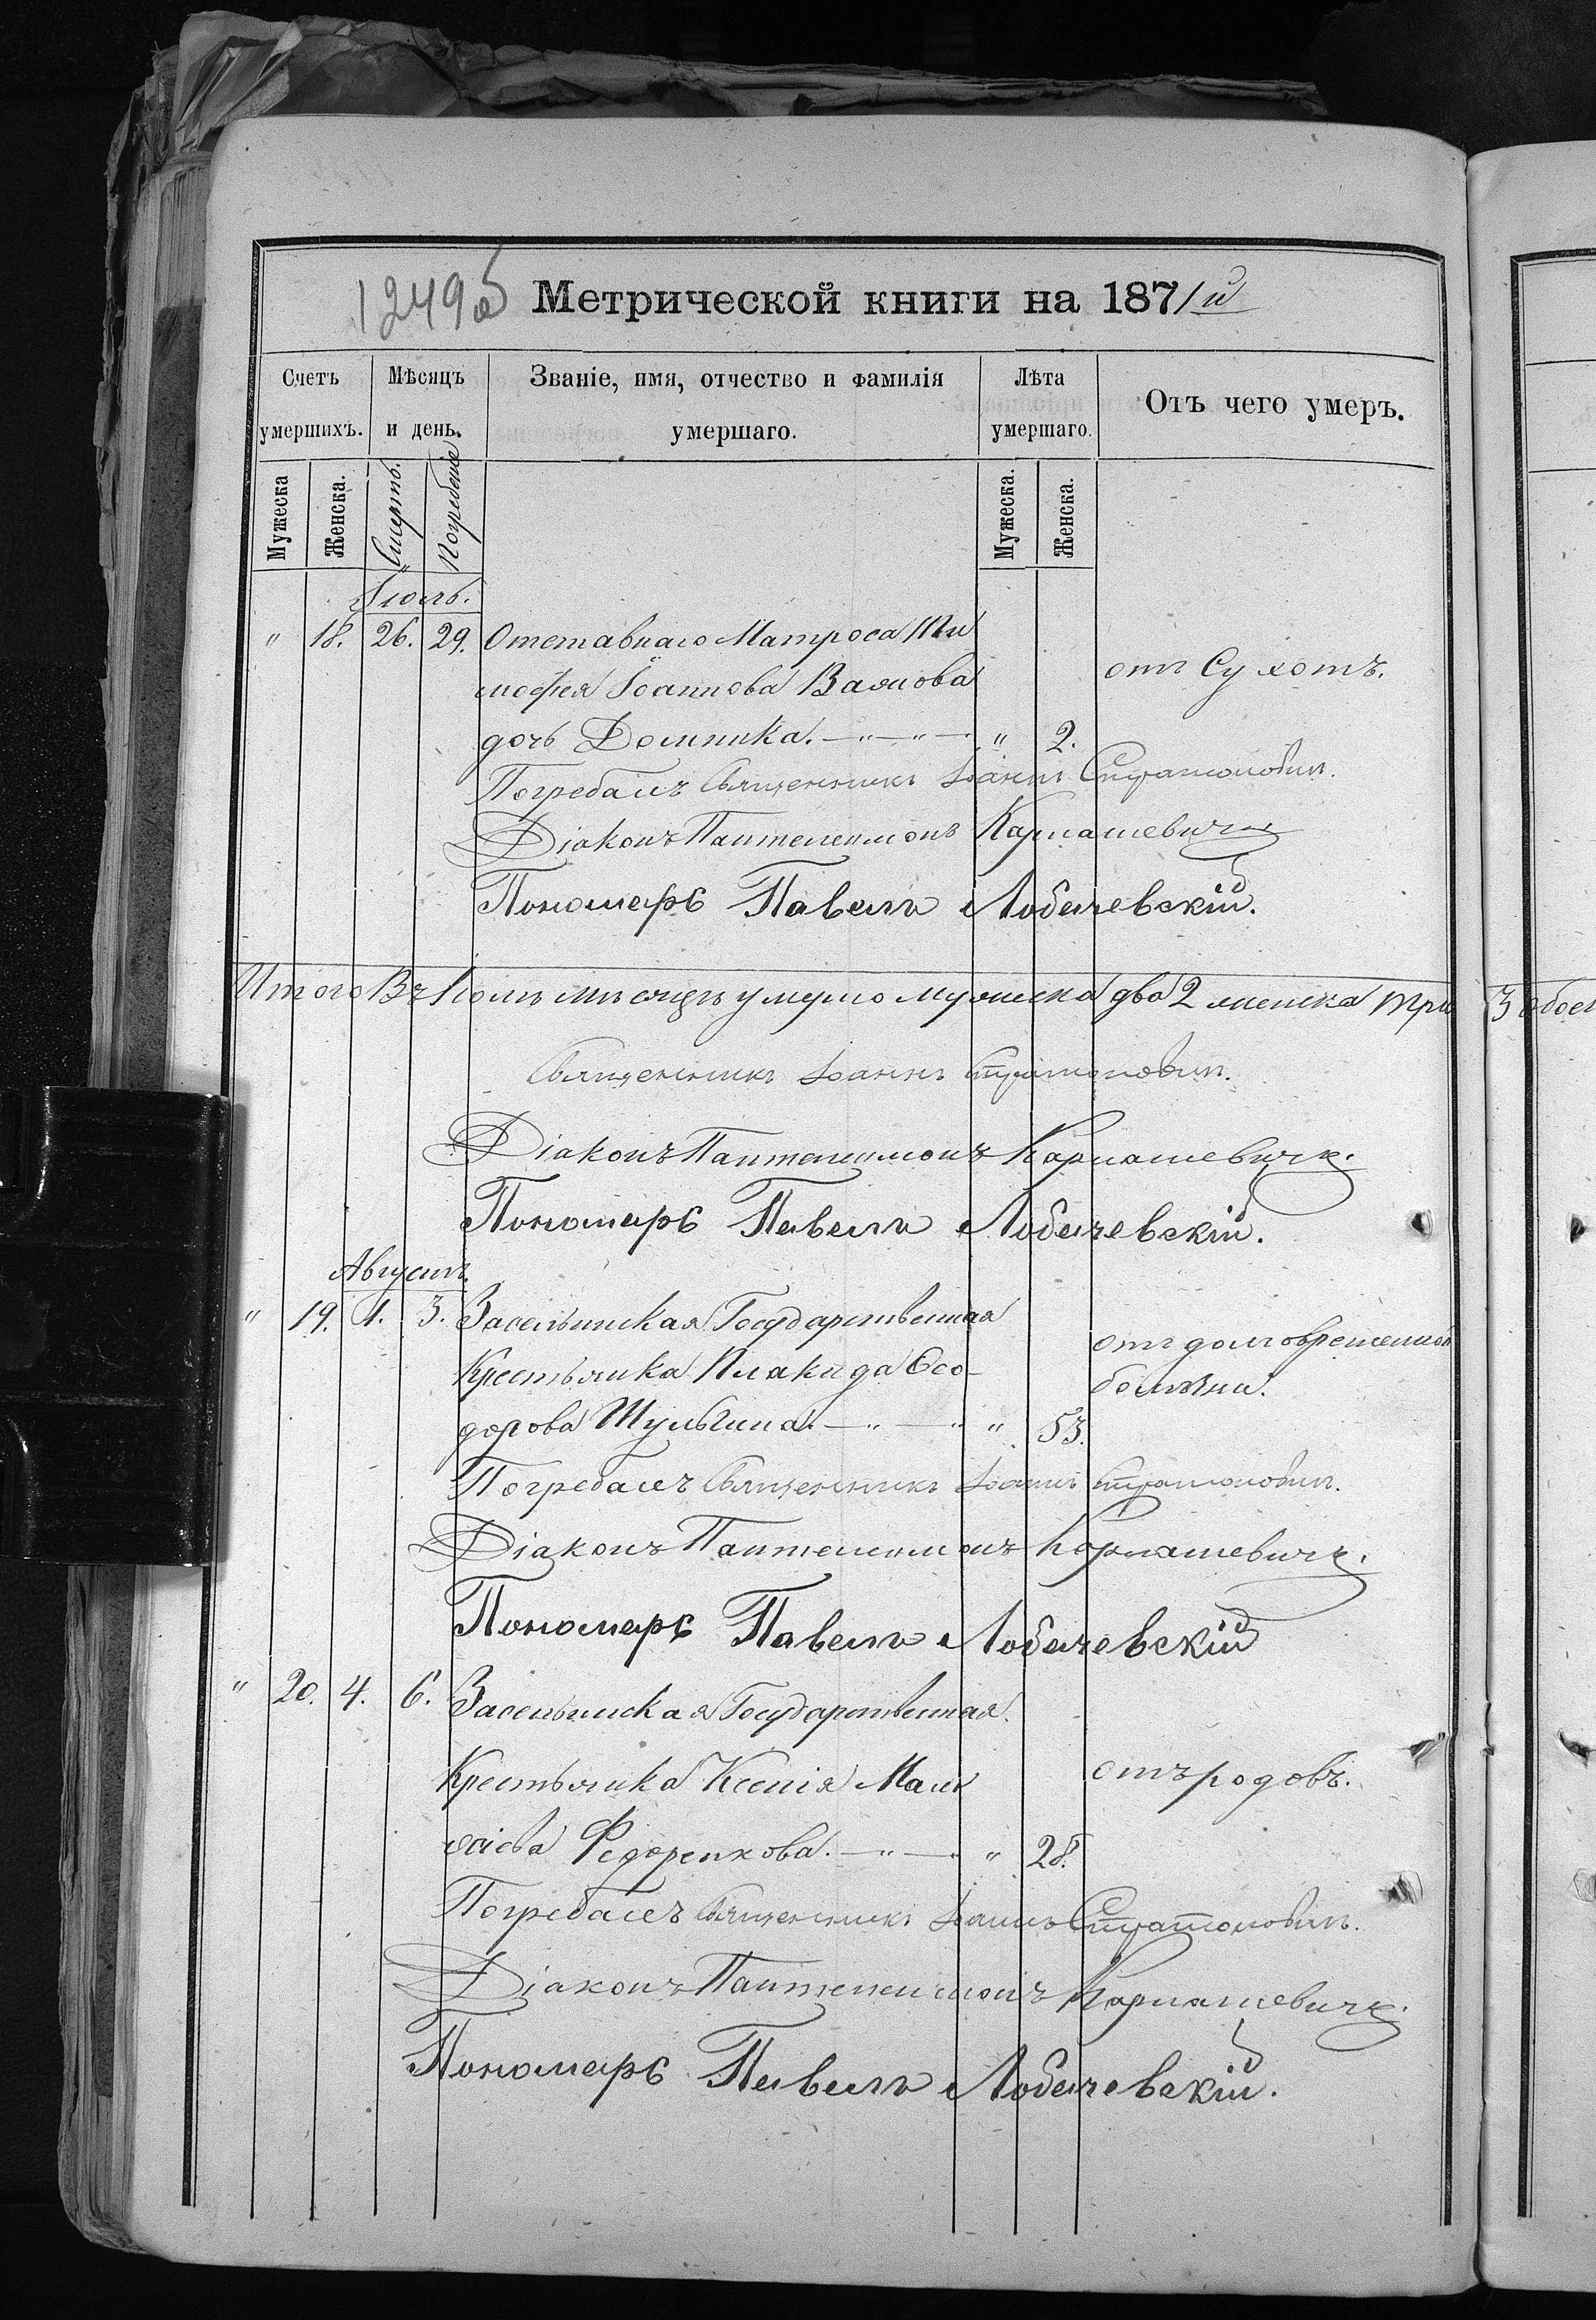 1249об Метрической книги на 1871й
Счетъ умершихъ. Мѣсяцъ и день. Званіе, имя, отчество и фамилія умершаго. Лѣта умершаго. Отъ чего умеръ.
Мужеска Женска. Смерть. Погребеніе Мужеска. Женска.
Іюль.
" 18. 26. 29. Отставнаго Матроса Ти
мофея Іоаннова
отъ Сухотъ.
дочь Домника. —"—"— " 2.
Погребалъ Священникъ Іоаннъ Стратоновичъ.
Діаконъ Пантелеимонъ Карпашевичъ
Пономарь Павелъ Лобачевскій.
Итого Въ Іюлѣ мѣсяцѣ умерло мужеска два 2 женска три 3 обоег
Священникъ Іоаннъ Стратоновичъ.
Діаконъ Пантелеимонъ Карпашевичъ.
Пономарь Павелъ Лобачевскій.
Августъ.
" 19. 1. 3. Засельшская Государственная
отъ долговременной
Крестьянка Плакида Ѳео-
болѣзни.
дорова Шульгина. —"— " " 53.
Погребалъ Священникъ Іоаннъ Стратоновичъ.
Діаконъ Пантелеимонъ Карпашевичъ.
Пономарь Павелъ Лобачевскій
" 20. 4. 6. Засельшская Государственная
Крестьянка Ксенія
отъ родовъ.
Федоренкова. —"—. " 28.
Погребалъ Священникъ Іоаннъ Стратоновичъ.
Діаконъ Пантелеимонъ Карпашевичъ.
Пономарь Павелъ Лобачевскій.